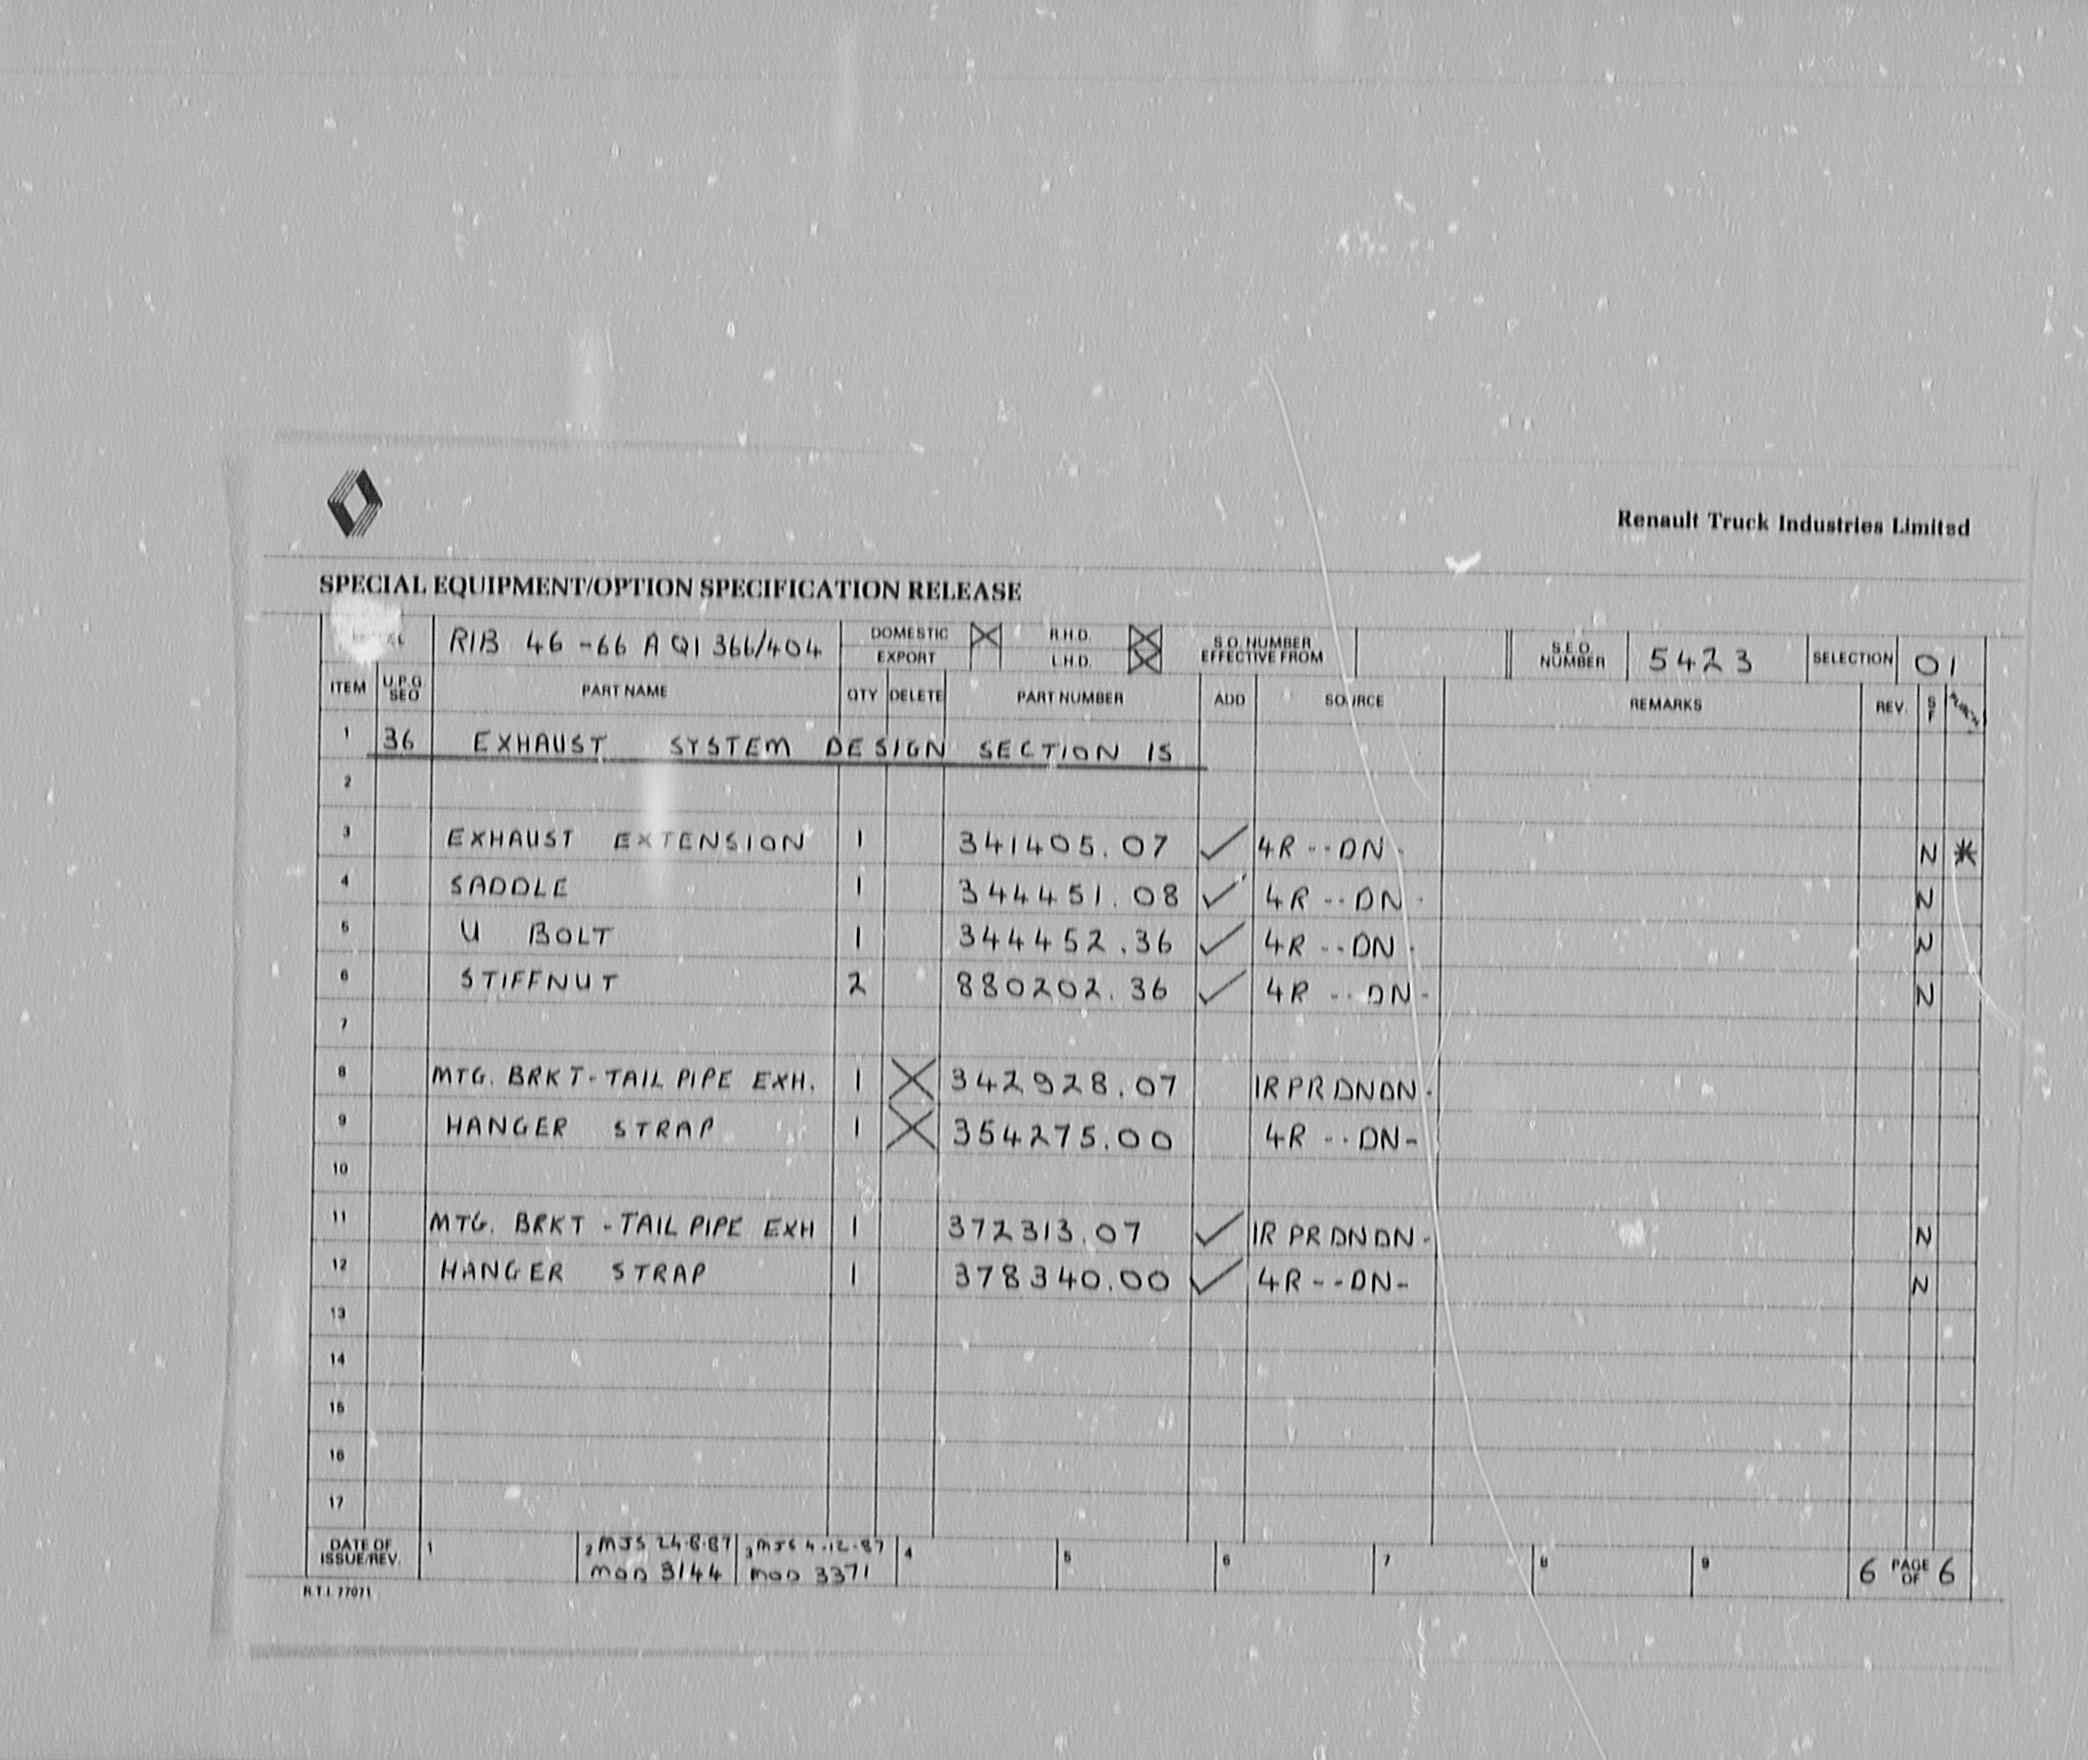 Renault Truck Industries Limited
SPECIAL EQUIPMENT/OPTION SPECIFICATION RELEASE
R1B 46-66 A Q1 366/404 DOMESTIC R.H.D. S.O. NUMBER S.E.O. 5423 SELECTION 01
EXPORT L.H.D. EFFECTIVE FROM NUMBER
ITEM U.P.G SEO PART NAME QTY DELETE PART NUMBER ADD SOURCE REMARKS REV. S F
1 36 EXHAUST SYSTEM DESIGN SECTION 15
2
3 EXHAUST EXTENSION 1 341405.07 ✓ 4R--DN- N *
4 SADDLE 1 344451.08 ✓ 4R--DN- N
5 U BOLT 1 344452.36 ✓ 4R--DN- N
6 STIFFNUT 2 880202.36 ✓ 4R--DN- N
7
8 MTG. BRKT-TAIL PIPE EXH. 1 X 342928.07 1RPRDNDN-
9 HANGER STRAP 1 X 354275.00 4R--DN-
10
11 MTG. BRKT-TAIL PIPE EXH 1 372313.07 ✓ 1RPRDNDN- N
12 HANGER STRAP 1 378340.00 ✓ 4R--DN- N
13
14
15
16
17
DATE OF ISSUE/REV. 1 2 MJS 24.8.87 3 MJS 4.12.87 4 5 6 7 8 9 6 PAGE OF 6
MOD 3144 MOD 3371
R.T.I. 77071